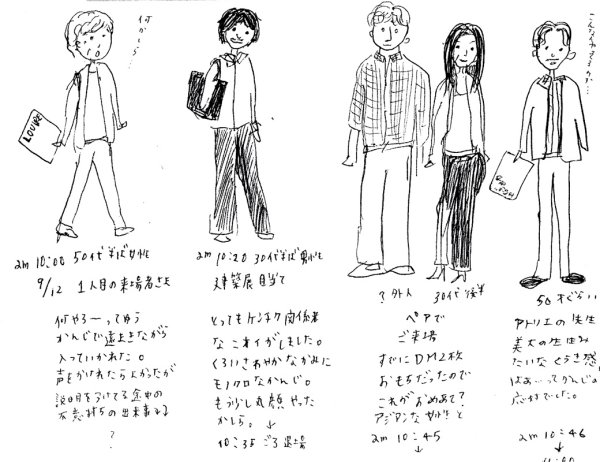 何かしら
LOUVRE
am 10:00 50代半ば女性
9/12 1人目の来場者さま
何やろーってゆう
かんじで遠まきながら
入っていかれた。
声をかけれたらよかったが
説明をうけてる途中の
の出来事
?
am 10:20 30代半ば男性
建築展目当て
とってもケンチク関係者
なニオイがしました。
くろいさわやかなかんじ
モノクロなかんじ。
もう少し丸顔やった
かしら。
↓
10:35ごろ退場
? 外人 30代後半
ペアで
ご来場
すでにDM2枚
おもちだったので
これがおめあて?
アジアンな女性と
am 10:45
↓
50才ぐらい
アトリエの先生
美大の先生み
たいなくうき感。
はぁ…ってかんじの
応対でした。
am 10:46
↓